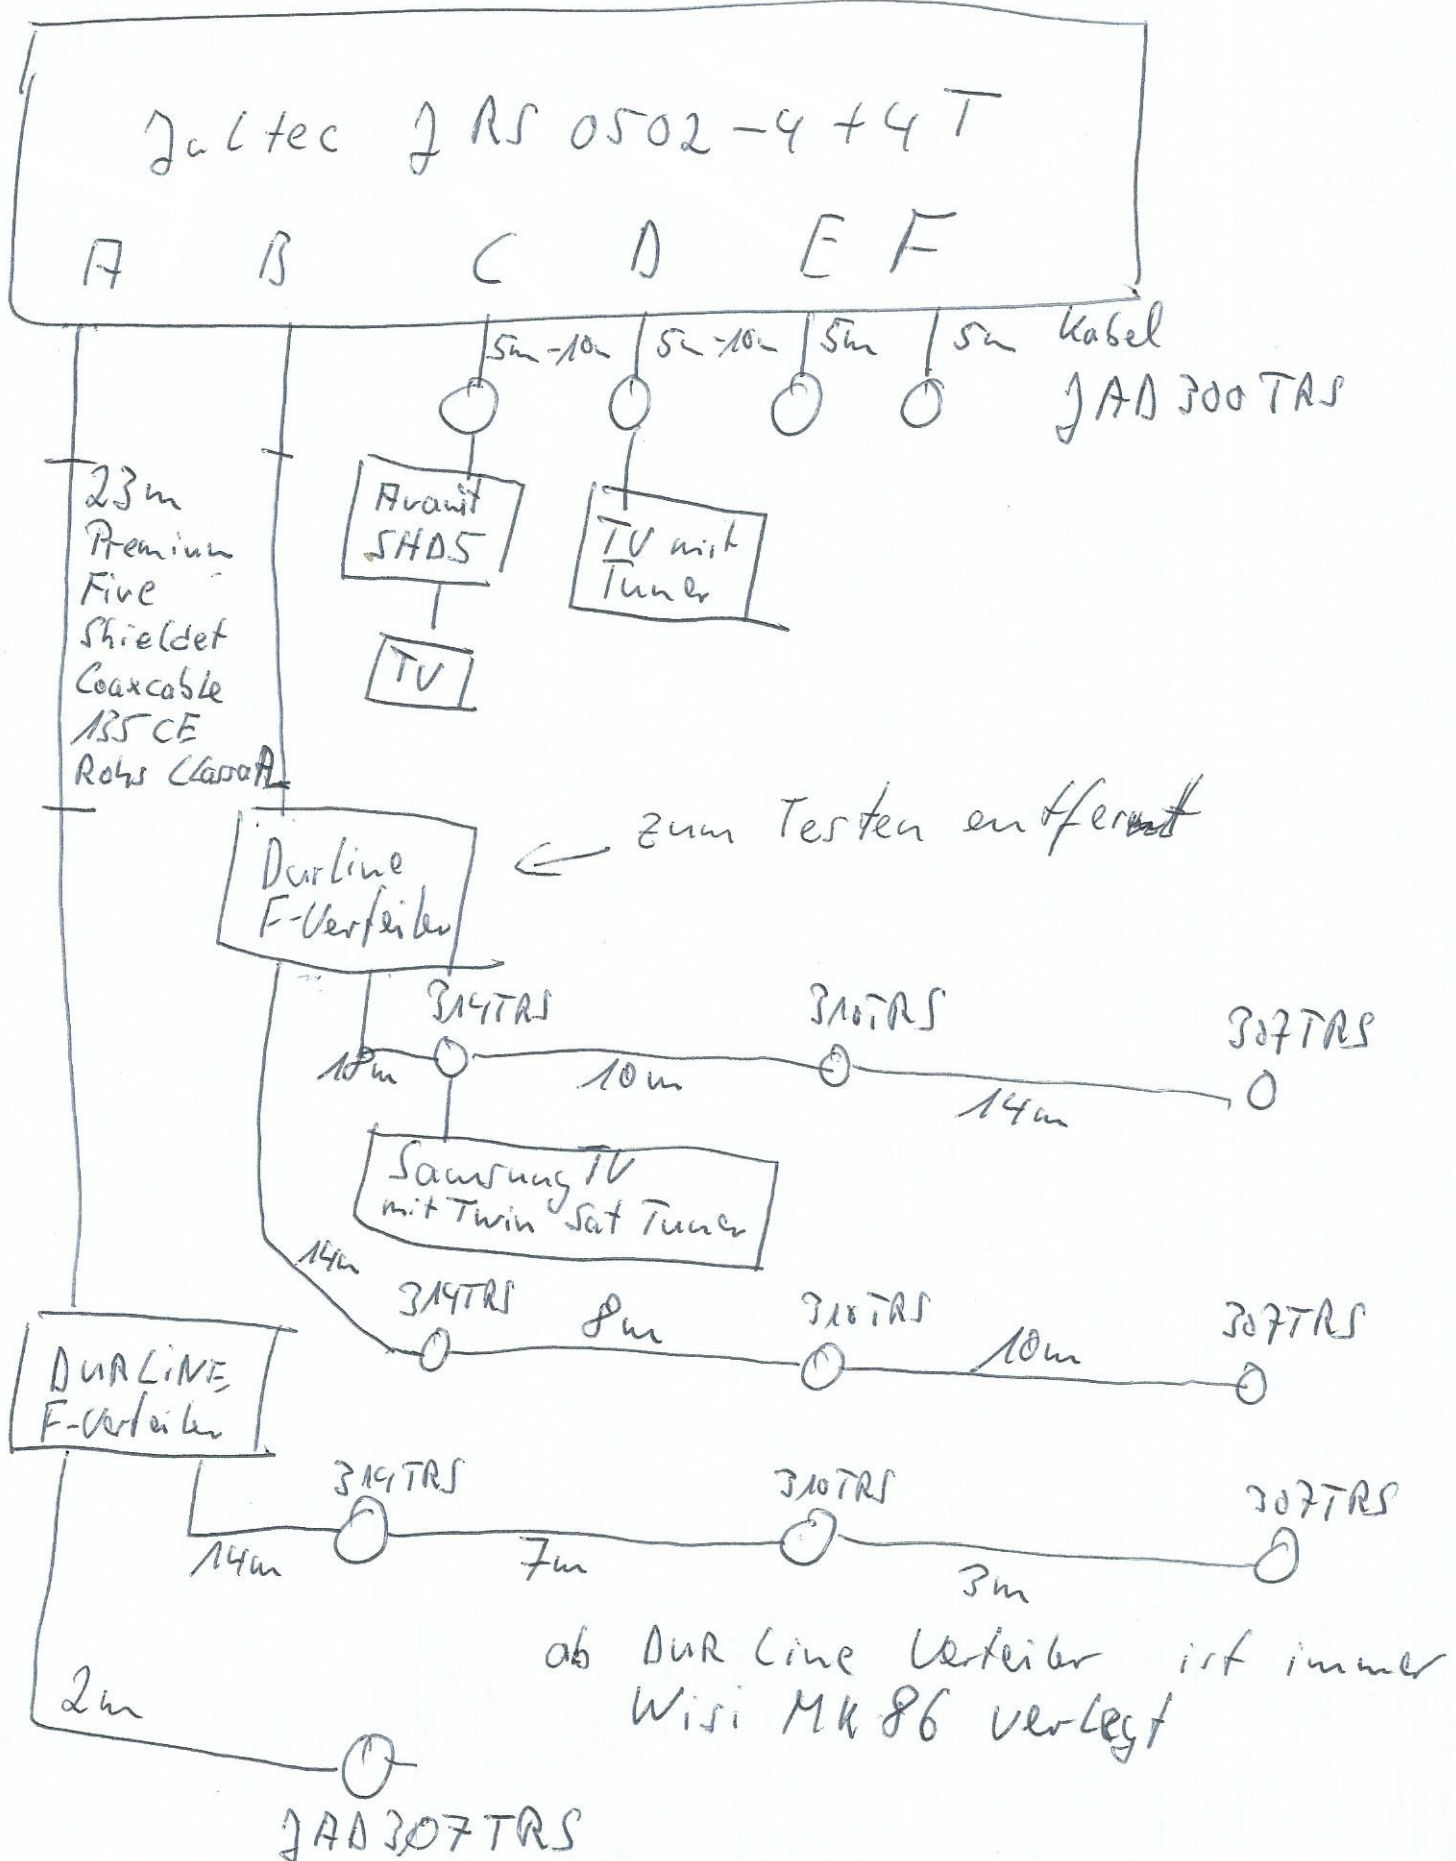 Jultec JRS 0502-4+4T
A B C D E F
5m-10m 5m-10m 5m 5m Kabel
JAD 300 TRS
23m
Premium
Five
Shieldet
Coaxcable
135 CE
Rohs Classe A
Avanit
SHD5
TV mit
Tuner
TV
DurLine
F-Verteiler
zum Testen entfernt
314TRS 310TRS 307TRS
18m 10m 14m
Samsung TV
mit Twin Sat Tuner
14m
314TRS 8m 310TRS 10m 307TRS
DURLINE
F-Verteiler
314TRS 310TRS 307TRS
14m 7m 3m
ab DUR Line Verteiler ist immer
Wisi MK 86 verlegt
2m
JAD307TRS